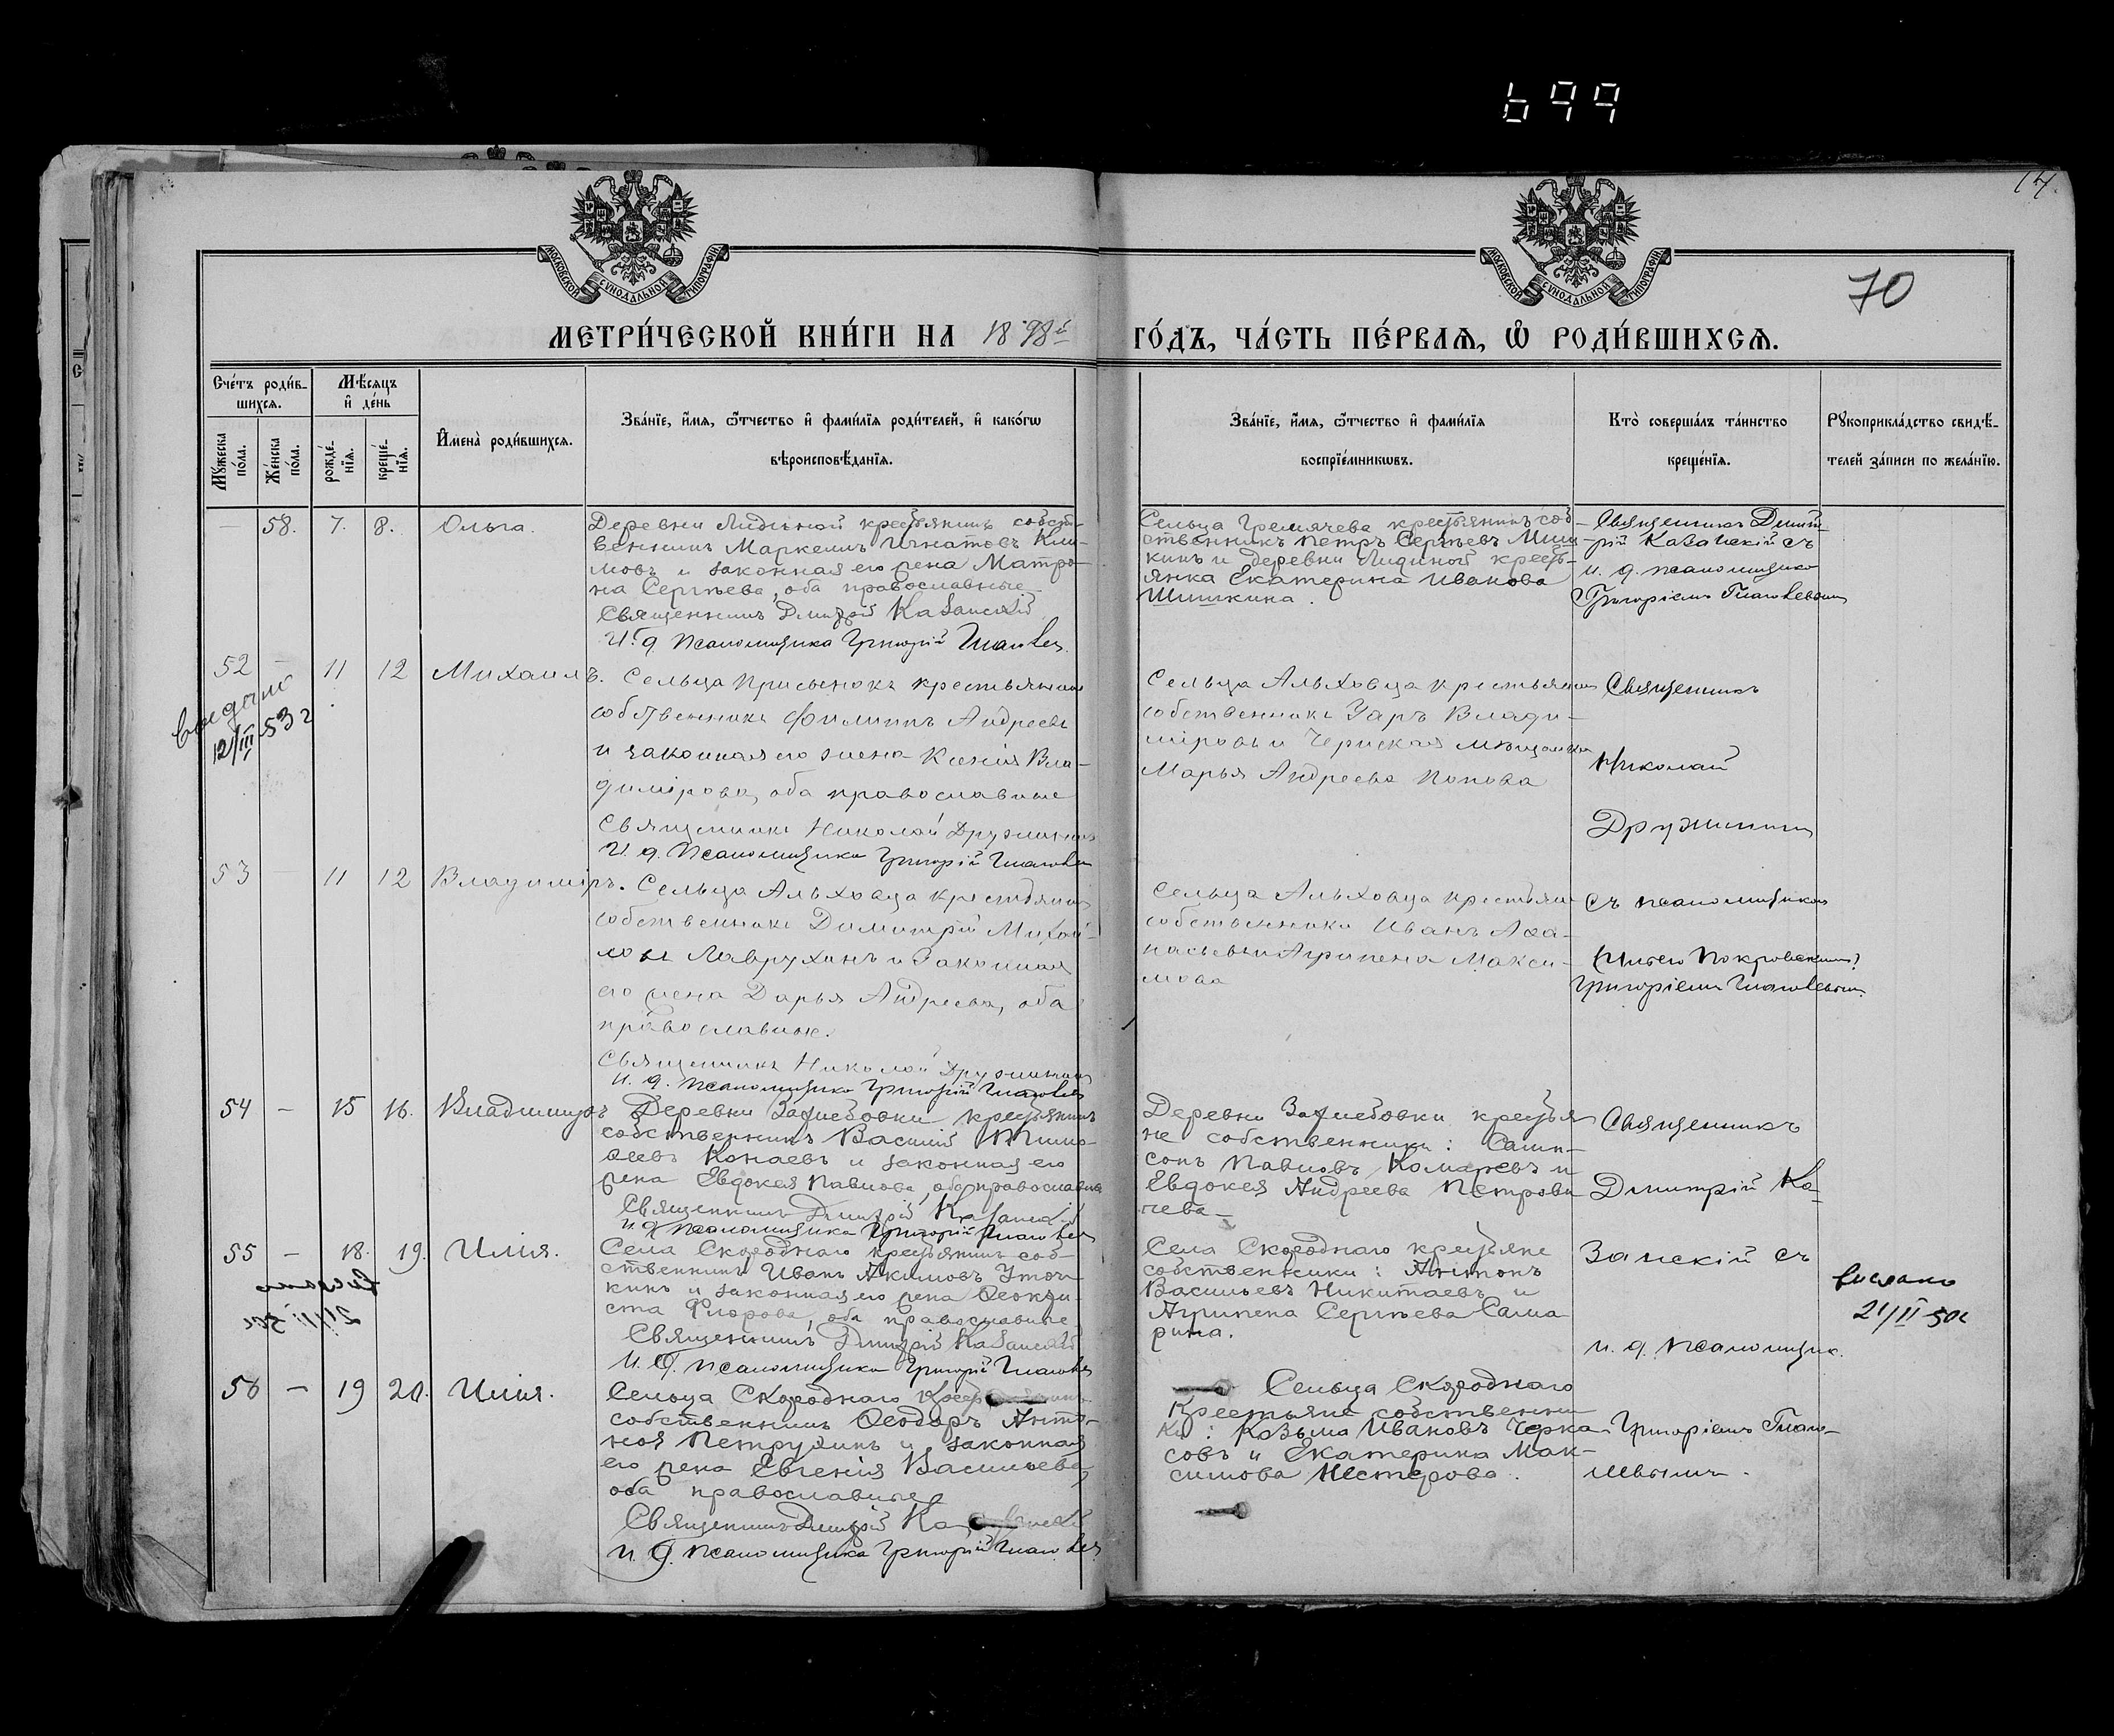 699
14.
70
МОСКОВСКОЙ СУНОДАЛЬНОЙ ТИПОГРАФІИ
МОСКОВСКОЙ СУНОДАЛЬНОЙ ТИПОГРАФІИ
МЕТРИ́ЧЕСКОЙ КНИ́ГИ НА 1898й ГО́ДЪ, ЧА́СТЬ ПЕ́РВАЯ, Ѡ РОДИ́ВШИХСЯ.
Сче́тъ роди́в-
шихся.
Мѣ́сяцъ
и де́нь
Му́жеска
по́ла.
Же́нска
по́ла.
рожде́-
нїя.
креще́-
нїя.
Имена̀ роди́вшихся.
Зва́нїе, и́мя, ѻ́тчество и фами́лїя роди́телей, и како́гѡ
вѣроисповѣ́данїя.
Зва́нїе, и́мя, ѻ́тчество и фами́лїя
воспрїе́мникѡвъ.
Кто̀ соверша́лъ та́инство
креще́нїя.
Рꙋкоприкла́дство свидѣ́-
телей за́писи по жела́нїю.
— 58. 7. 8. Ольга.
Деревни Лидиной крестьянинъ собст-
венникъ Маркеллъ Игнатовъ Кли-
мовъ и законная его жена Матро-
на Сергѣева, оба православные
Священникъ Димитрій Казанскій
И. д. псаломщика Григорій
Сельца Гремячева крестьянинъ соб-
ственникъ Петръ Сергѣевъ Миш-
кинъ и деревни Лидиной кресть-
янка Екатерина Иванова
Шишкина.
Священникъ Димит-
рій Казанскій съ
и. д. псаломщика
Григоріемъ
52 — 11 12 Михаилъ.
выдано
12/III-53 г
Сельца Присынокъ крестьянинъ
собственникъ Филиппъ Андреевъ
и законная его жена Ксенія Вла-
димірова, оба православные
Священникъ Николай Дружининъ
И. д. псаломщика Григорій
Сельца Альховца крестьянинъ
собственникъ Уаръ Влади-
міровъ и Чернская мѣщанка
Марья Андреева Попова
Священникъ
Николай
Дружининъ
53 — 11 12 Владиміръ.
Сельца Альховца крестьянинъ
собственникъ Димитрій Михай-
ловъ Лаврухинъ и законная
его жена Дарья Андреева, оба
православные.
Священникъ Николай Дружининъ
И. д. псаломщика Григорій
Сельца Альховца крестьян
собственникъ Иванъ Аѳа-
насьевъ и Агрипена Макси-
мова
съ псаломщикомъ
Ильею Покровскимъ
Григоріемъ
54 — 15 16. Владимиръ
Деревни крестьянинъ
собственникъ Василій Тимо-
ѳеевъ Конаевъ и законная его
жена Евдокея Павлова, оба православные
Священникъ Димитрій Казанскій
И. д. псаломщика Григорій
Деревни крестья
не собственники: Самп-
сонъ Павловъ Комаревъ и
Евдокея Андреева Петрови
чева
Священникъ
Димитрій Ка-
55 — 18. 19. Илія.
Села Скороднаго крестьянинъ соб-
ственникъ Иванъ Акимовъ Уточ-
кинъ и законная его жена Ѳеокти-
ста Флорова, оба православные
Священникъ Димитрій Казанскій
И. д. псаломщика Григорій
Села Скороднаго крестьяне
собственники: Антонъ
Васильевъ Никитаевъ и
Агрипена Сергѣева Сама
рина.
занскій съ
и. д. псаломщик.
выслано
21/II-50г
56 — 19 20. Илія.
Сельца Скороднаго
собственникъ Ѳеодоръ Анто-
новъ Петрухинъ и законная
его жена Евгенія Васильева,
оба православные
Священникъ Димитрій Казанскій
И. д. псаломщика Григорій
Сельца Скороднаго
Крестьяне собственни
ки: Козьма Ивановъ Черка
совъ и Екатерина Мак-
симова Нестерова.
Григоріемъ